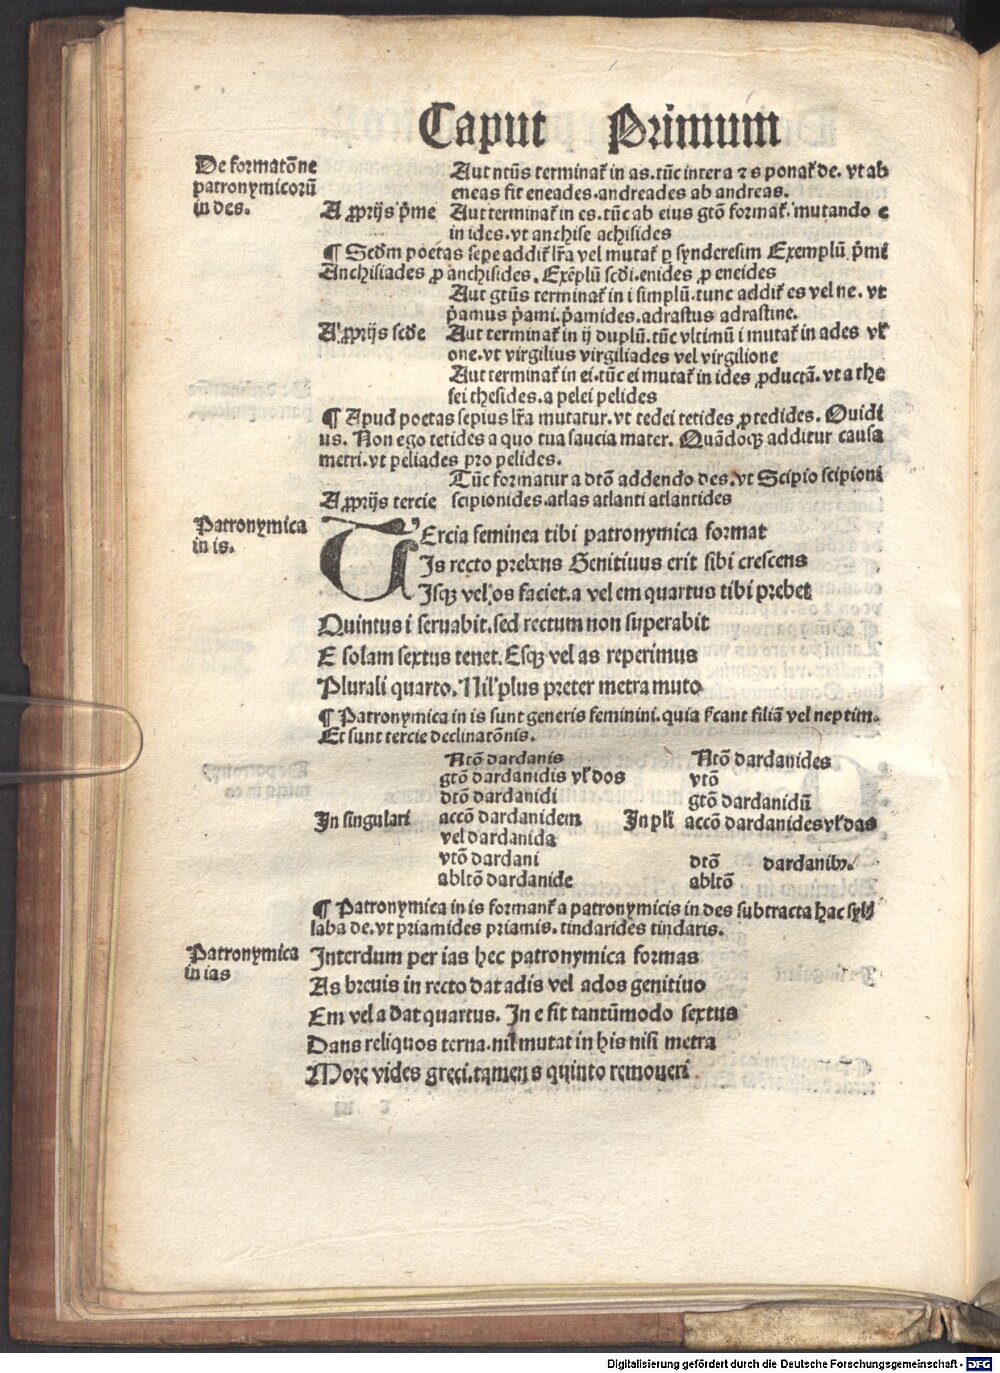 Caput Primum
De formatōne
patronymicorū
in des.
Aut ntūs terminat̄ in as. tūc inter a ⁊ s ponat̄ de. vt ab
eneas fit eneades. andreades ab andreas.
A ꝓprijs p̄me Aut terminat̄ in es. tūc ab eius gtō format̄. mutando e
in ides. vt anchise achisides
¶ Scd̄m poetas sepe addit̄ lr̄a vel mutat̄ ꝑ synderesim Exemplū p̄mi
Anchisiades ꝓ anchisides. Exēplū scd̄i. enides ꝓ eneides
Aut gtūs terminat̄ in i simplū. tunc addit̄ es vel ne. vt
p̄amus p̄ami. p̄amides. adrastus adrastine.
A ꝓprijs scd̄e Aut terminat̄ in ij duplū. tūc vltimū i mutat̄ in ades vl̄
one. vt virgilius virgiliades vel virgilione
Aut terminat̄ in ei. tūc ei mutat̄ in ides ꝓductā. vt a the
sei thesides. a pelei pelides
¶ Apud poetas sepius lr̄a mutatur. vt tedei tetides ꝓ tedides. Ouidi
us. Non ego tetides a quo tua saucia mater. Quādoqꝫ additur causa
metri. vt peliades pro pelides.
Tūc formatur a dtō addendo des. vt Scipio scipioni
A ꝓprijs tercie scipionides. atlas atlanti atlantides
Patronymica
in is.
TErcia feminea tibi patronymica format
Is recto prebens Genitiuus erit sibi crescens
Isqꝫ vel os faciet. a vel em quartus tibi prebet
Quintus i seruabit. sed rectum non superabit
E solam sextus tenet. Esqꝫ vel as reperimus
Plurali quarto. Nil plus preter metra muto
¶ Patronymica in is sunt generis feminini. quia s̄cant filiā vel neptim.
Et sunt tercie declinatōnis.
Ntō dardanis Ntō dardanides
gtō dardanidis vl̄ dos vtō
dtō dardanidi gtō dardanidū
In singulari accō dardanidem In pl̄i accō dardanides vl̄ das
vel dardanida
vtō dardani dtō dardanibꝰ.
abltō dardanide abltō
¶ Patronymica in is formant̄ a patronymicis in des subtracta hac syl
laba de. vt priamides priamis. tindarides tindaris.
Patronymica
in ias
Interdum per ias hec patronymica formas
As breuis in recto dat adis vel ados genitiuo
Em vel a dat quartus. In e fit tantūmodo sextus
Dans reliquos terna. nil mutat in his nisi metra
More vides greci. tamen s quinto remoueri
Digitalisierung gefördert durch die Deutsche Forschungsgemeinschaft - DFG